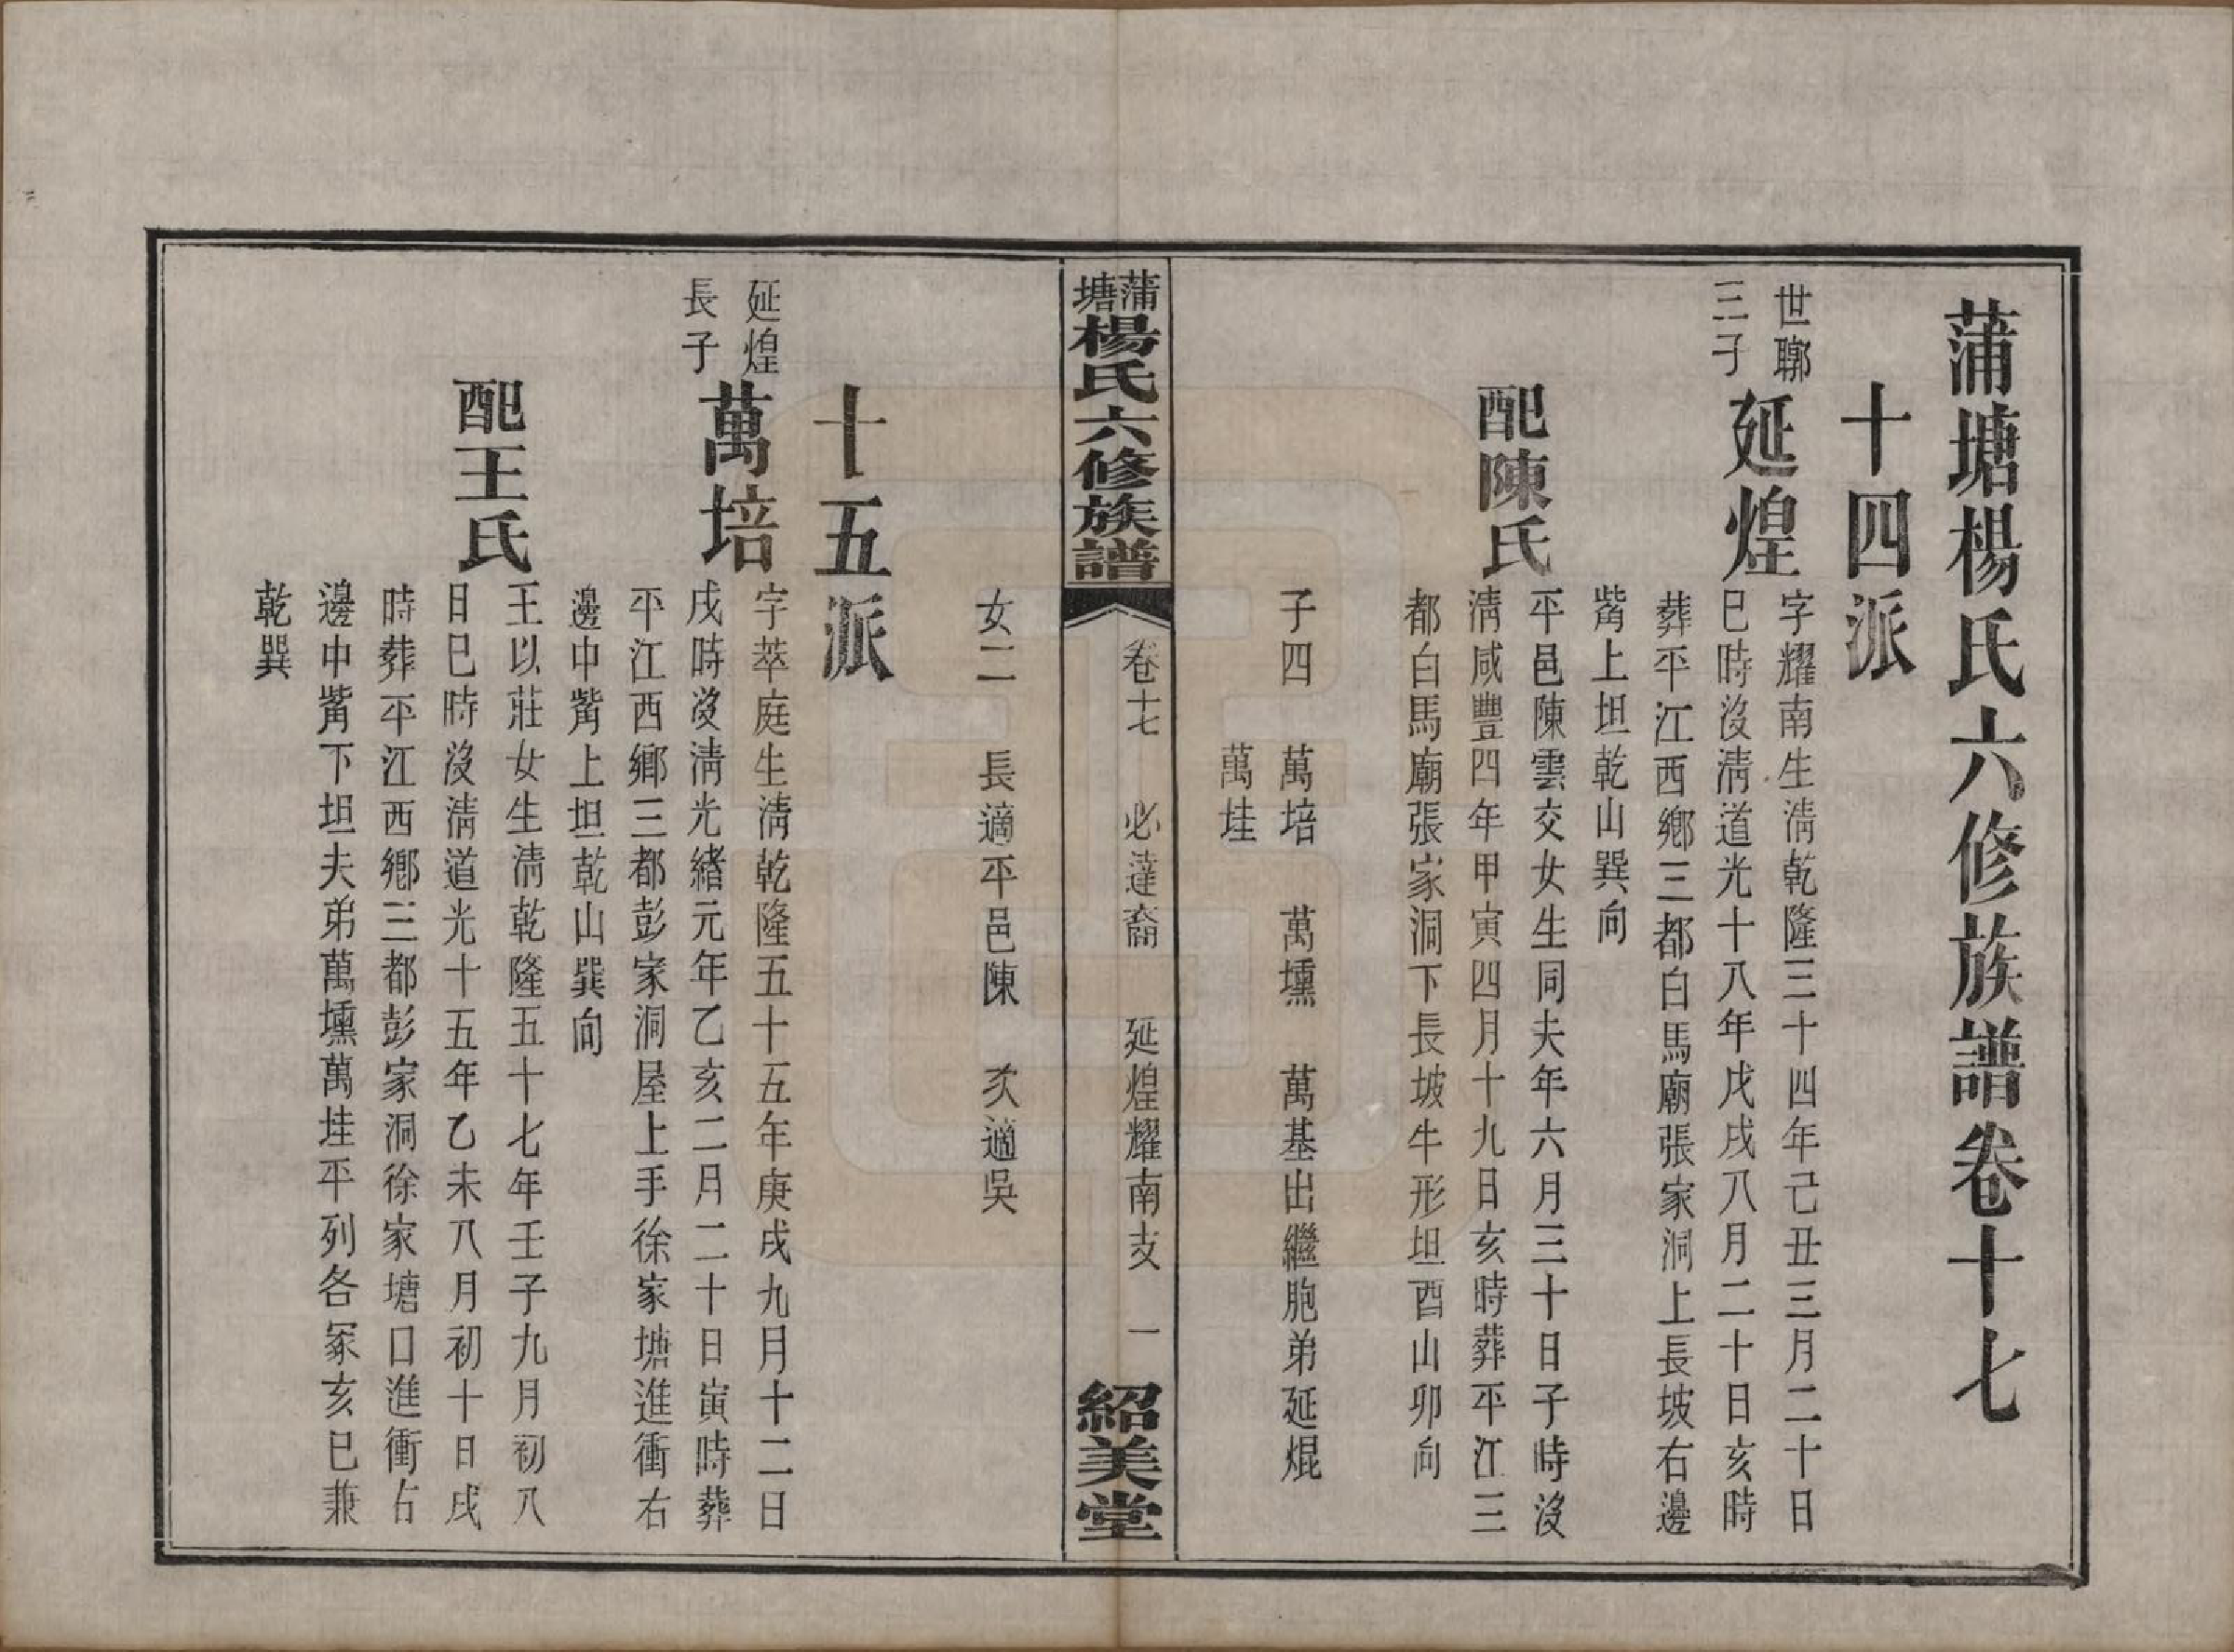 蒲塘楊氏六修族譜卷十七
十四派
世聯
三子
延煌
字耀南生淸乾隆三十四年己丑三月二十日
巳時沒淸道光十八年戊戌八月二十日亥時
葬平江西鄕三都白馬廟張家洞上長坡右邊
觜上坦乾山巽向
配陳氏
平邑陳雲交女生同夫年六月三十日子時沒
淸咸豐四年甲寅四月十九日亥時葬平江三
都白馬廟張家洞下長坡牛形坦酉山卯向
子四　萬培　萬壎　萬基出繼胞弟延焜
萬㘶
蒲塘楊氏六修族譜　卷十七　必達裔　延煌耀南支　一　紹美堂
女二　長適平邑陳　次適吳
十五派
延煌
長子
萬培
字萃庭生淸乾隆五十五年庚戌九月十二日
戌時沒淸光緖元年乙亥二月二十日寅時葬
平江西鄕三都彭家洞屋上手徐家塘進衝右
邊中觜上坦乾山巽向
配王氏
王以莊女生淸乾隆五十七年壬子九月初八
日巳時沒淸道光十五年乙未八月初十日戌
時葬平江西鄕三都彭家洞徐家塘口進衝右
邊中觜下坦夫弟萬壎萬㘶平列各冢亥巳兼
乾巽